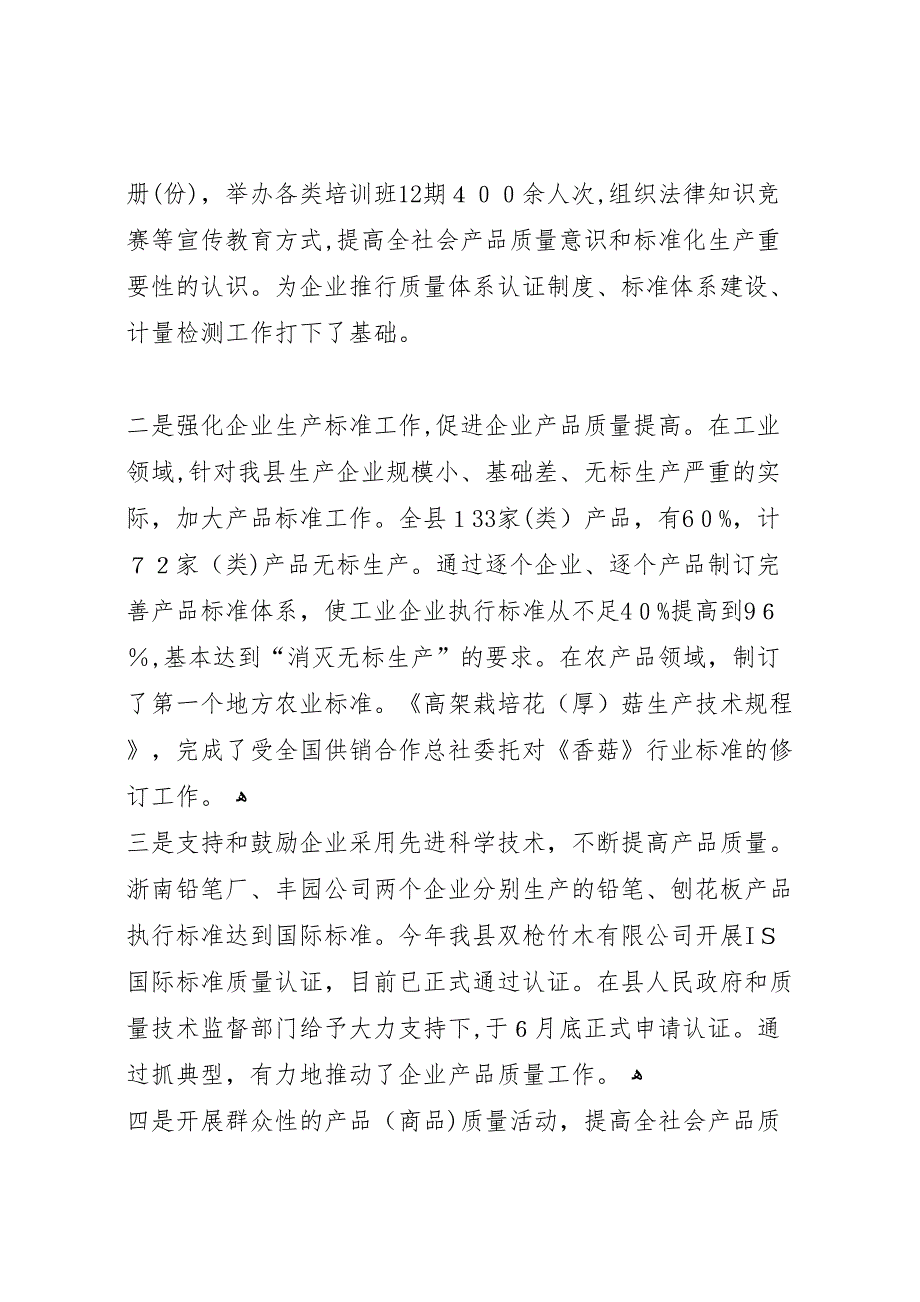 册(份)，举办各类培训班12期４００余人次,组织法律知识竞
赛等宣传教育方式,提高全社会产品质量意识和标准化生产重
要性的认识。为企业推行质量体系认证制度、标准体系建设、
计量检测工作打下了基础。
二是强化企业生产标准工作,促进企业产品质量提高。在工业
领域,针对我县生产企业规模小、基础差、无标生产严重的实
际，加大产品标准工作。全县１33家(类）产品，有6０%，计
７２家（类)产品无标生产。通过逐个企业、逐个产品制订完
善产品标准体系，使工业企业执行标准从不足4０%提高到9６
％,基本达到“消灭无标生产”的要求。在农产品领域，制订
了第一个地方农业标准。《高架栽培花（厚）菇生产技术规程
》，完成了受全国供销合作总社委托对《香菇》行业标准的修
订工作。 ﻫ
三是支持和鼓励企业采用先进科学技术，不断提高产品质量。
浙南铅笔厂、丰园公司两个企业分别生产的铅笔、刨花板产品
执行标准达到国际标准。今年我县双枪竹木有限公司开展IＳ
国际标准质量认证，目前已正式通过认证。在县人民政府和质
量技术监督部门给予大力支持下,于６月底正式申请认证。通
过抓典型，有力地推动了企业产品质量工作。 ﻫ
四是开展群众性的产品（商品)质量活动，提高全社会产品质